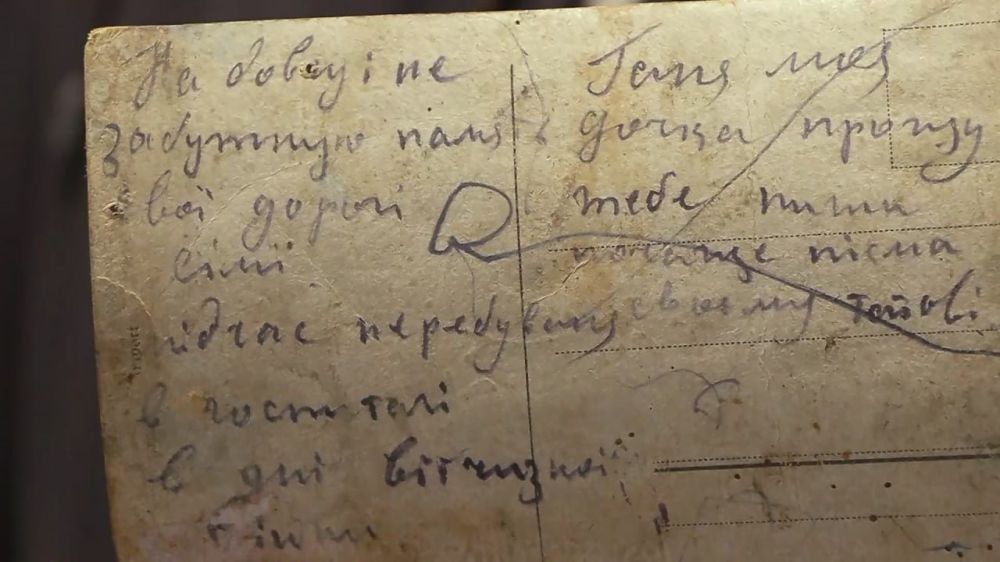 На довгу і не
забутню памя
вої дорогі
сімї
підчас перебуваня
в госпиталі
в дні вітчизної
війни
Галя моя
дочка прошу
тебе пиши
почаще писма
своєму татові